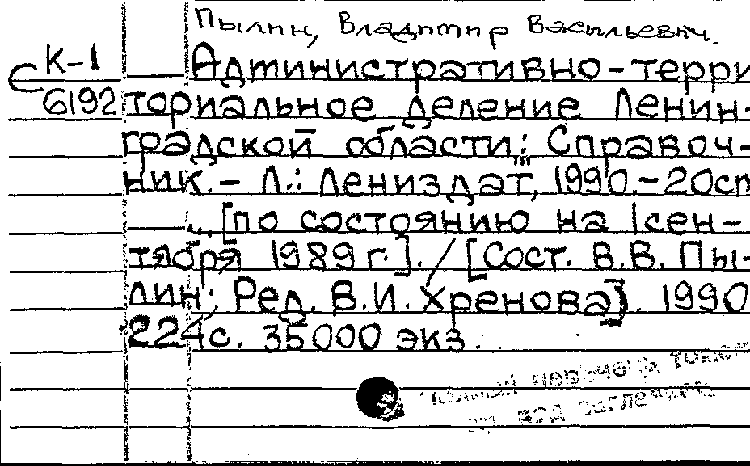 Пылин, Владимир Васильевич.
К-1 Административно-терри
6192 ториальное деление Ленин-
градской области: Справоч-
ник. – Л.: Лениздат, 1990.-20см
... [по состоянию на 1 сен-
тября 1989 г.]. / [Сост. В.В. Пы-
лин; Ред. В.И. Хренова]. 1990
224с. 35000 экз.